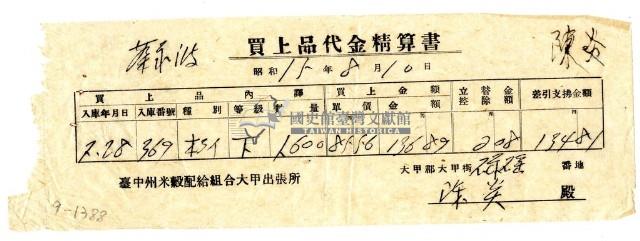 買上品代金精算書
昭和15年8月10日
買上品內譯 買上金額 立替金控除額 差引支拂金額
入庫年月日 入庫番號 種別 等級 數量 單價 金額
國史館臺灣文獻館
TAIWAN HISTORICA
2.28 369 下 1600 8556 13689 208 13481
臺中州米穀配給組合大甲出張所
大甲郡大甲街 番地
殿
9-1388